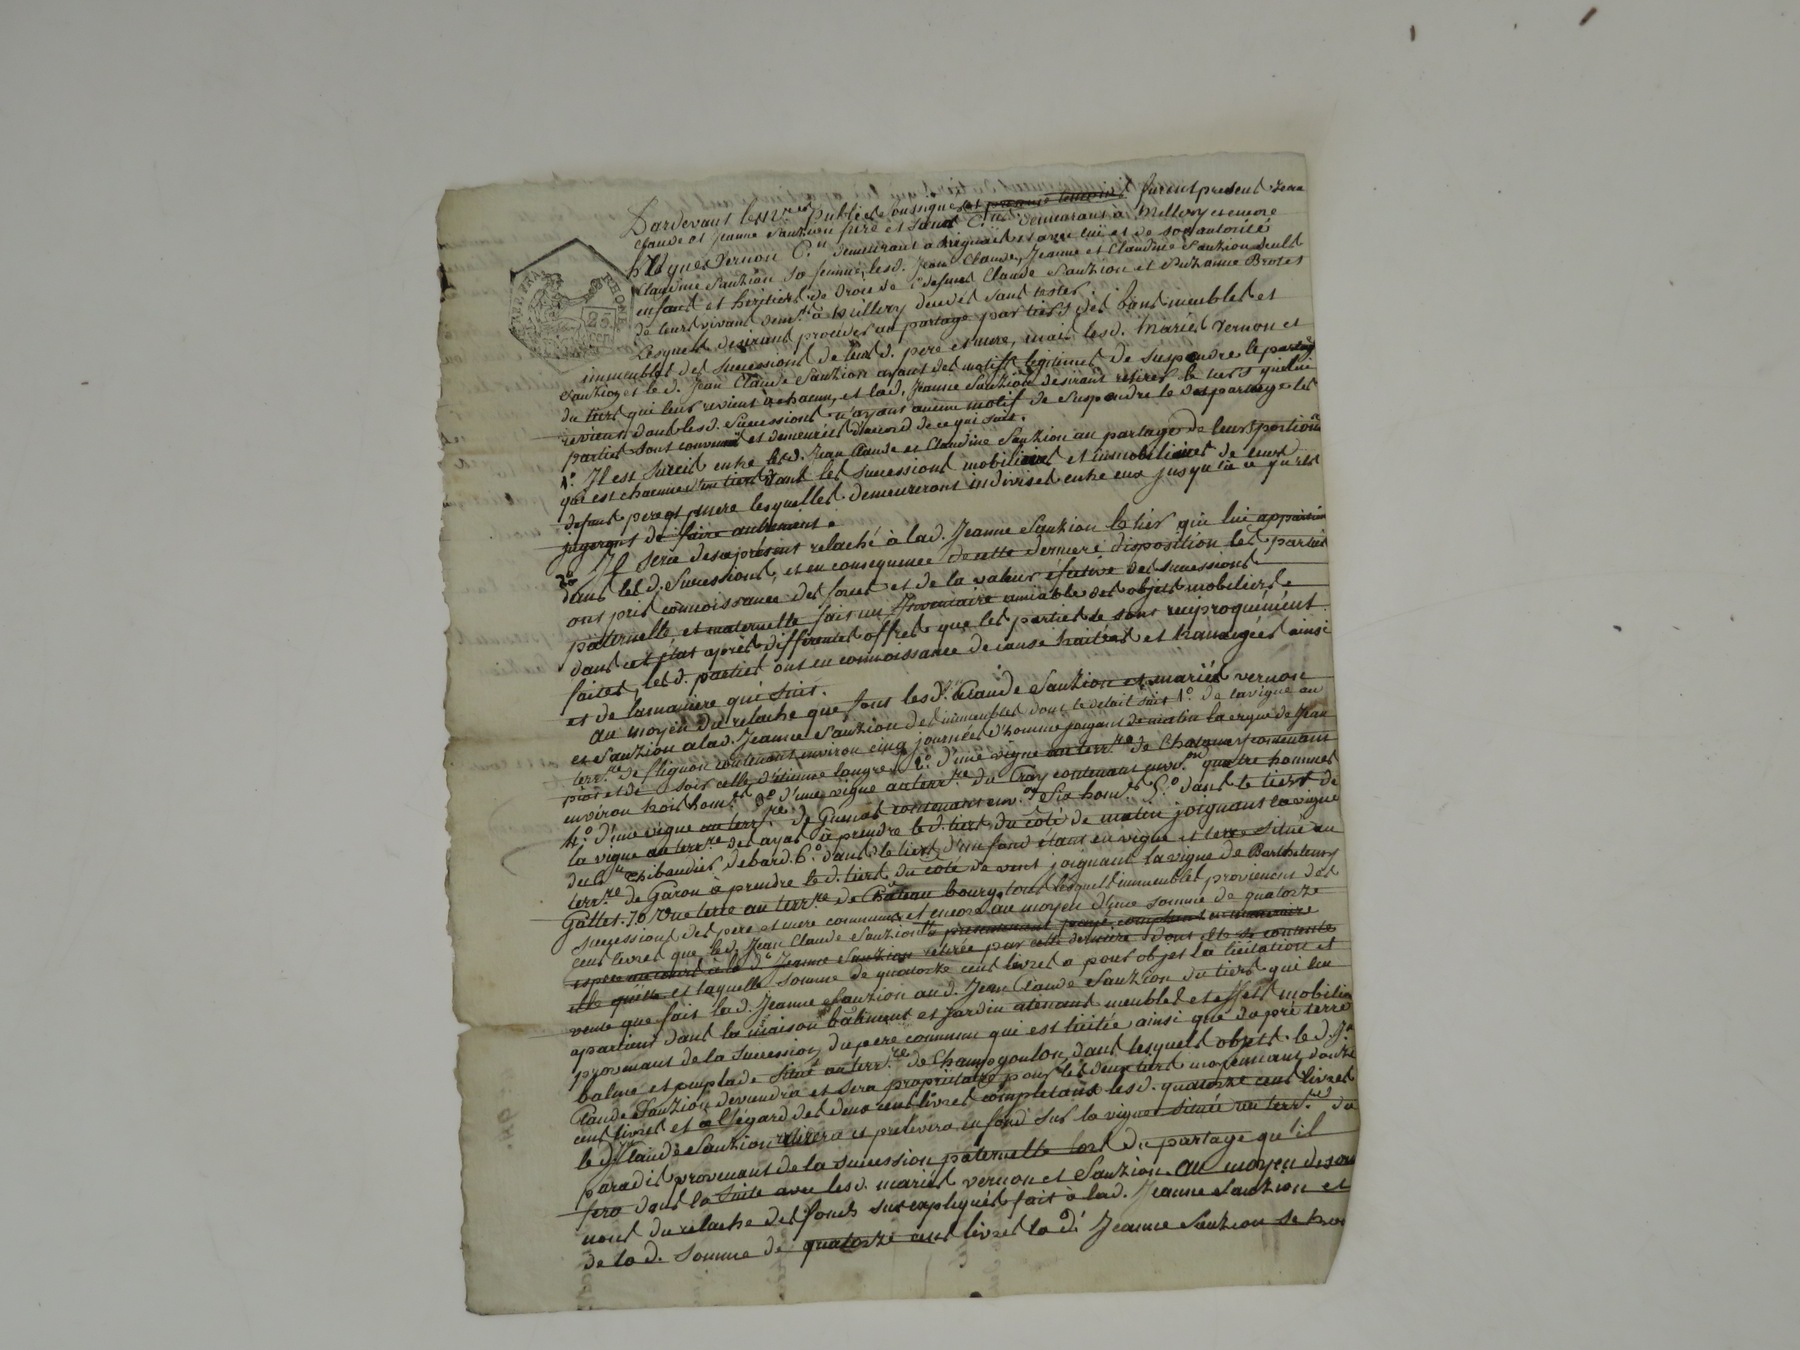 Pardevant les nres publics soussignés et présence temoins furent present Jean
Claude et Jeanne Sauzion frere et sœur Cns demeurans à Millery et encore
Jacques Vernon Cn demeurant à Brignais et avec lui et de son autorité
Claudine Sauzion sa femme, lesd. Jean Claude, Jeanne et Claudine Sauzion seuls
enfans et heritiers de droit de defunts Claude Sauzion et Suzanne Brotet
de leurs vivans demts à Millery decedés sans tester.
RHONE
25
Lesquels desirant proceder au partage par tiers des biens meubles et
immeubles des successions de leurs d. pere et mere, mais lesd. mariés Vernon et
Sauzion et le d. Jean Claude Sauzion ayant des motifs legitimes de suspendre le partage
du tiers qui leur revient à chacun, et lad. Jeanne Sauzion desirant retirer le tiers qui lui
revient dans lesd. successions n'ayant aucun motif de suspendre le partage les
parties sont convenues et demeurées d'accord de ce qui suit.
1º Il est surcis entre lesd. Jean Claude et Claudine Sauzion au partage de leurs portions
qui est chacune d'un tiers dans les successions mobiliaires et immobiliaires de leurs
defunts pere et mere lesquelles demeureront indivises entre eux jusqu'à ce qu'ils
jugeront de faire autrement.
2º Il sera desaprésent relaché à lad. Jeanne Sauzion le tiers qui lui appartient
dans lesd. successions, et en consequence de cette derniere disposition les parties
ont pris connoissance des forces et de la valeur éfective des successions
paternelle et maternelle fait un Inventaire amiable des objets mobiliers
dans cet état après differentes offres que les parties se sont reciproquement
faites, les d. parties ont en connoissance de cause traitées et transigées ainsi
et de la maniere qui suit.
Au moyen du relache que font les d. Claude Sauzion et mariés Vernon
et Sauzion à lad. Jeanne Sauzion des immeubles dont le detail suit 1º de la vigne au
terrre de flignon contenant environ cinq journées d'homme joignant de matin la vigne de Jean
piot et de soir celle d'étienne longre 2º d'une vigne au terrre de Chasques contenant
environ trois homes 3º d'une vigne au terrre du Cray contenant envon quatre hommes
4º d'une vigne au terrre de Gumas contenant envon six homs 5º dans le tiers de
la vigne au terrre des ayas à prendre le d. tiers du côté de matin joignant la vigne
du Cn thibaudier debard. 6º dans le tiers d'un fond étant en vigne et terre situé au
terrre de Garon à prendre le d. tiers du côté de vent joignant la vigne de Barthelemy
Gallet. 7º Une terre au terrre de Chateau bourg, tous lesquels immeubles provienent des
successions des pere et mere communs et encore au moyen d'une somme de quatorze
cent livres que le d. Jean Claude Sauzion a presentement payé comptant en numeraire
especes au cours à la de Jeanne Sauzion retirée par cette derniere dont elle se contente
et le quitte et laquelle somme de quatorze cent livres a pour objet la licitation et
vente que fait la d. Jeanne Sauzion au d. Jean Claude Sauzion du tiers qui lui
apartient dans la maison bâtiment et jardin atenant meubles et effets mobiliers
provenant de la succession du pere commun qui est licitée ainsi que du pré terre
balme et puplade situé au terrre de Champgoulon, dans lesquels objets le d. Jn
Claude Sauzion deviendra et sera proprietaire pour les deux tiers moyennant douze
cent livres et à l'égard des deux cent livres completans les d. quatorze cent livres
le d. Claude Sauzion retirera et prelevera en fond sur la vigne située au terrre du
paradis provenant de la succession paternelle lors du partage qu'il
fera dans la suite avec lesd. mariés Vernon et Sauzion. Au moyen des
nous du relache des fonds sus expliqués fait à la d. Jeanne Sauzion et
de la d. somme de quatorze cent livres la de Jeanne Sauzion se